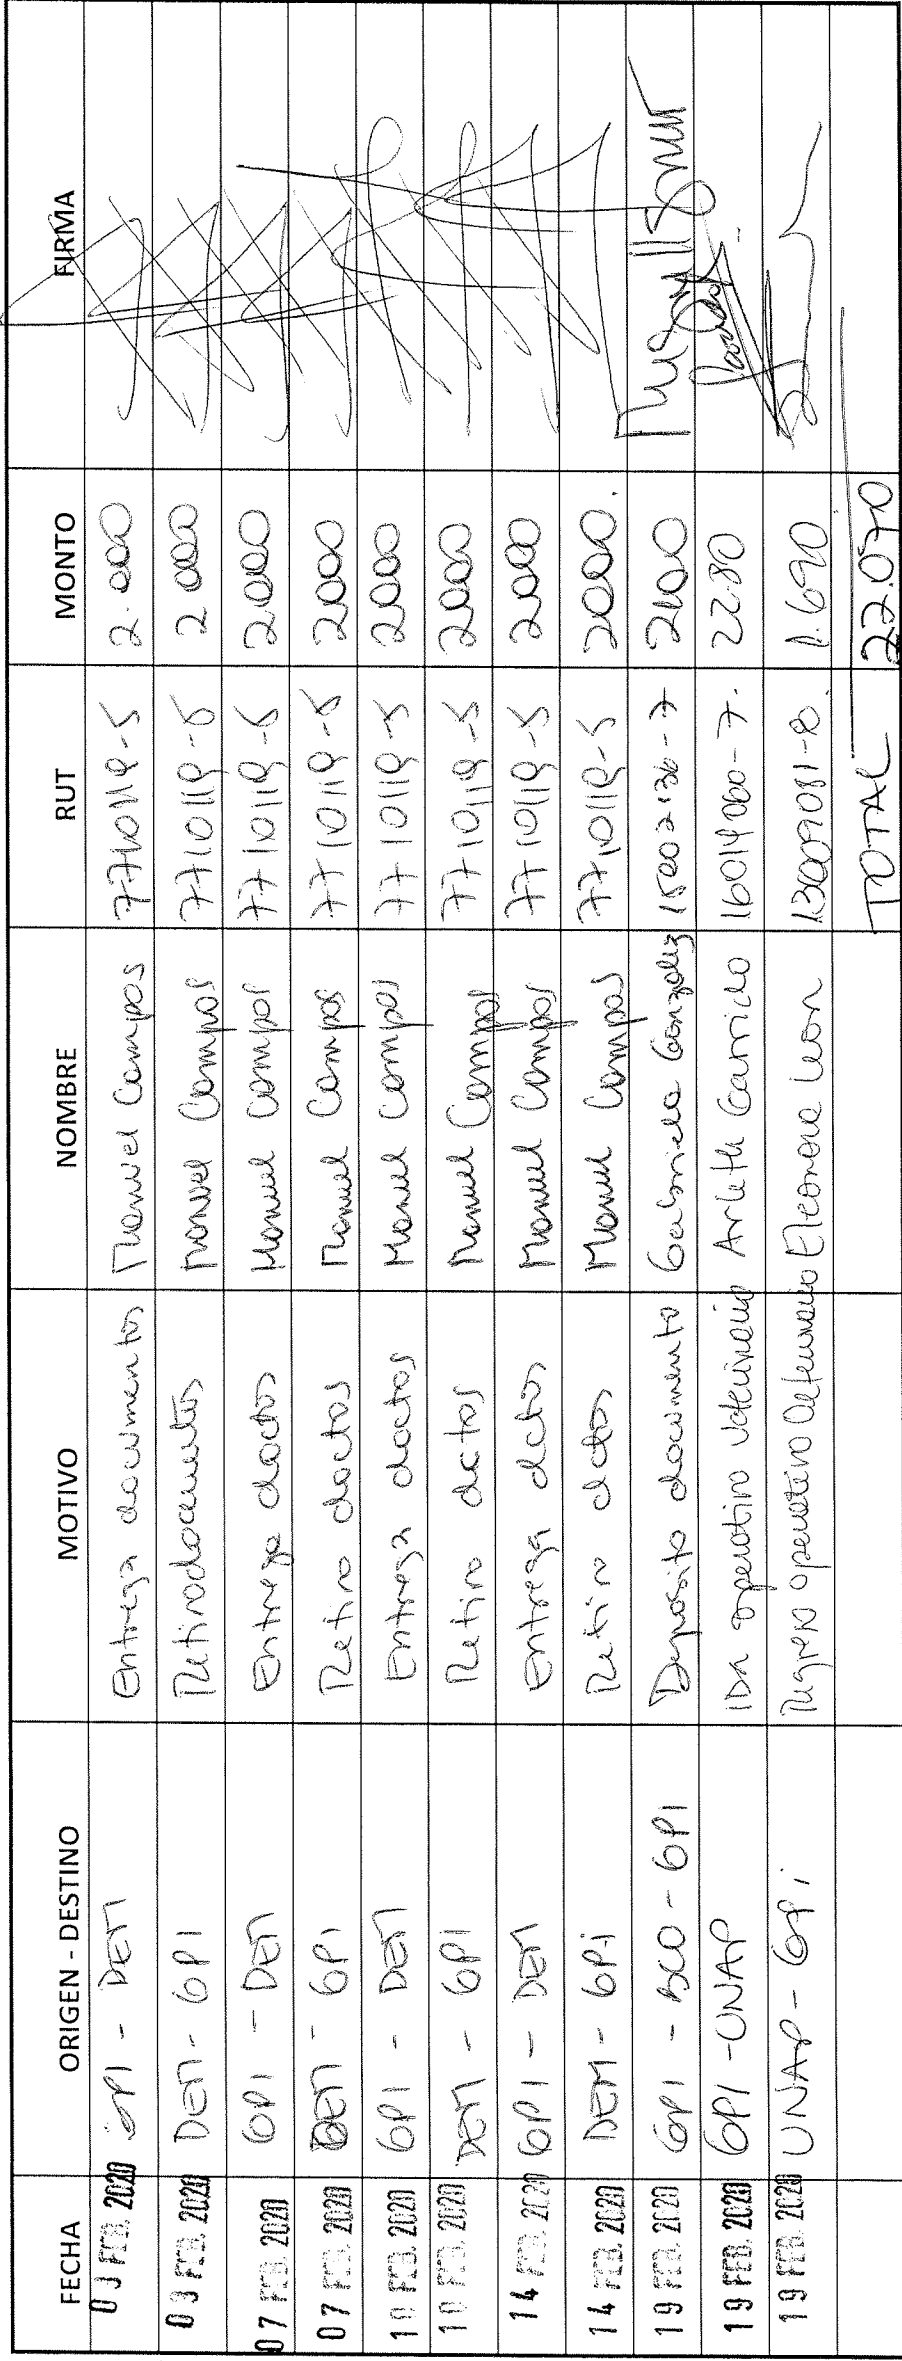 FECHA ORIGEN - DESTINO MOTIVO NOMBRE RUT MONTO FIRMA
03 FEB. 2020 OPI - DEM Entrega documentos Manuel Campos 7710119-5 2.000
03 FEB. 2020 DEM - OPI Retiro documentos Manuel Campos 7710119-5 2000
07 FEB. 2020 OPI - DEM Entrega doctos Manuel Campos 7710119-5 2000
07 FEB. 2020 DEM - OPI Retiro doctos Manuel Campos 7710119-5 2000
10 FEB. 2020 OPI - DEM Entrega doctos Manuel Campos 7710119-5 2000
10 FEB. 2020 DEM - OPI Retiro dctos Manuel Campos 7710119-5 2000
14 FEB. 2020 OPI - DEM Entrega dctos Manuel Campos 7710119-5 2000
14 FEB. 2020 DEM - OPI Retiro dctos Manuel Campos 7710119-5 2000.
19 FEB. 2020 OPI - BCO - OPI Deposito documento Gabriela Gonzalez 2100
19 FEB. 2020 OPI - UNAP IDA operativo veterinario Arleth Garrido 16019060-7. 2280
19 FEB. 2020 UNAP - OPI Regreso operativo veterinario Eleonora Leon 1.690
TOTAL 22.070